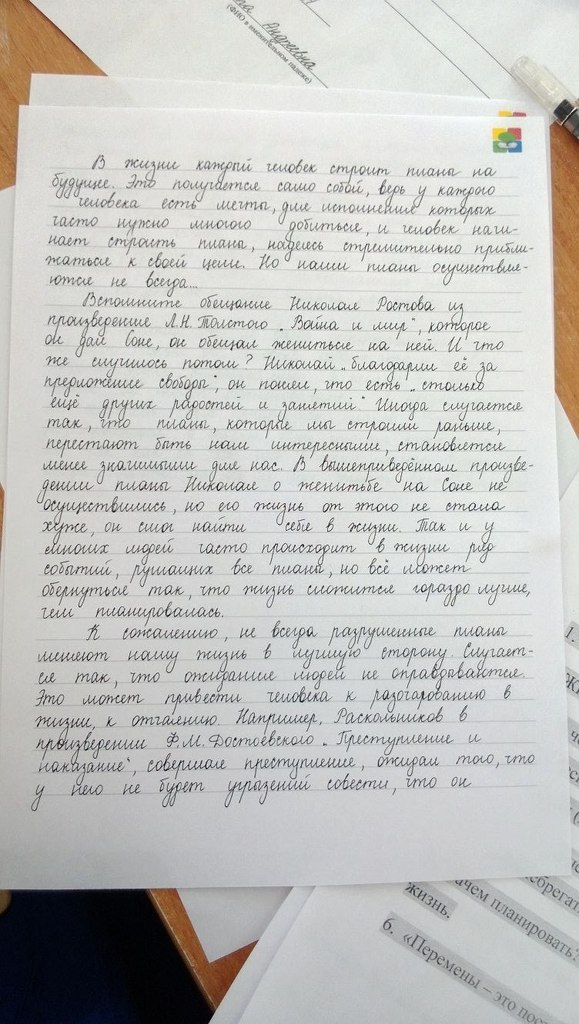 Андреевна
(ФИО в именительном падеже)
В жизни каждый человек строит планы на
будущее. Это получается само собой, верь у каждого
человека есть мечты, для исполнения которых
часто нужно многого добиться, и человек начи-
нает строить планы, надеясь стремительно прибли-
жаться к своей цели. Но наши планы осуществля-
ются не всегда...
Вспомните обещание Николая Ростова из
произведение Л.Н. Толстого „Война и мир", которое
он дал Соне, он обещал жениться на ней. И что
же случилось потом? Николай „благодарил её за
предложение свободы", он понял, что есть „столько
ещё других радостей и занятий" Иногда случается
так, что планы, которые мы строили раньше,
перестают быть нам интересными, становятся
менее значимыми для нас. В вышеприведённом произве-
дении планы Николая о женитьбе на Соне не
осуществились, но его жизнь от этого не стала
хуже, он смог найти себя в жизни. Так и у
многих людей часто происходит в жизни ряд
событий, рушащих все планы, но всё может
обернуться так, что жизнь сложится гораздо лучше,
чем планировалась.
К сожалению, не всегда разрушенные планы
меняют нашу жизнь в лучшую сторону. Случает-
ся так, что ожидания людей не оправдываются.
Это может привести человека к разочарованию в
жизни, к отчаянию. Например, Раскольников в
произведении Ф.М. Достоевского „Преступление и
наказание", совершая преступление, ожидал того, что
у него не будет угрызений совести, что он
1.
небрегат
Зачем планировать?
жизнь.
6. «Перемены – это пост